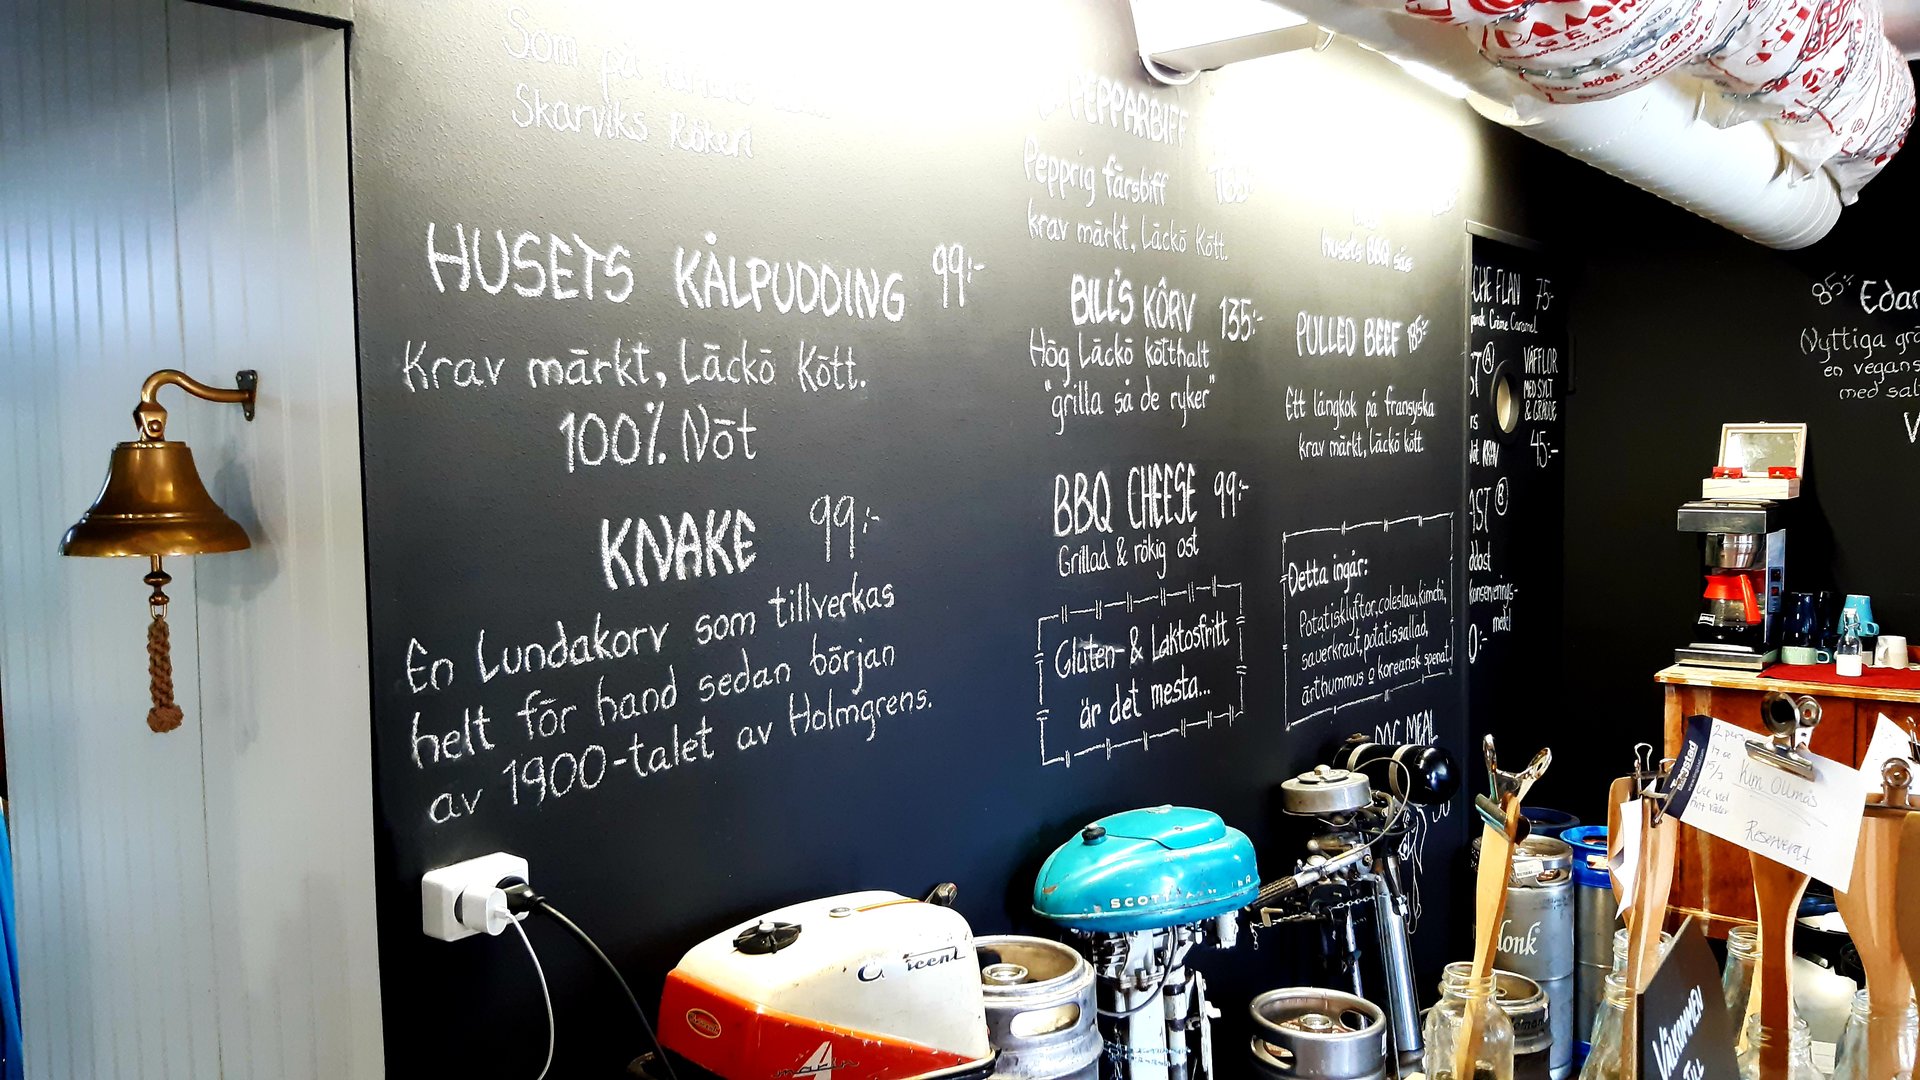 Som på
Skarviks Rökeri
HUSETS KÅLPUDDING 99:-
Krav märkt, Läckö Kött.
100% Nöt
KNAKE 99:-
En Lundakorv som tillverkas
helt för hand sedan början
av 1900-talet av Holmgrens.
PEPPARBIFF
Pepprig färsbiff
krav märkt, Läckö Kött.
BILL'S KÔRV 135:-
Hög Läckö kötthalt
"grilla så de ryker"
BBQ CHEESE 99:-
Grillad & rökig ost
Gluten- & Laktosfritt
är det mesta...
husets BBQ sås
PULLED BEEF 185:-
Ett långkok på fransyska
krav märkt, Läckö kött.
Detta ingår:
Potatisklyftor, coleslaw, kimchi,
sauerkraut, potatissallad,
ärthummus o koreansk spenat.
DOG MEAL
FLAN 75:-
Crème Caramel
VÅFFLOR
MED SYLT
& GRÄDDE
45:-
85:- Edam
(Nyttiga
en vegans
med
CAMP
GERM
Röst- und
Crescent
MARIN
SCOTT
Kim Ollmås
Reserverat
VÄLKOMMEN
TILL